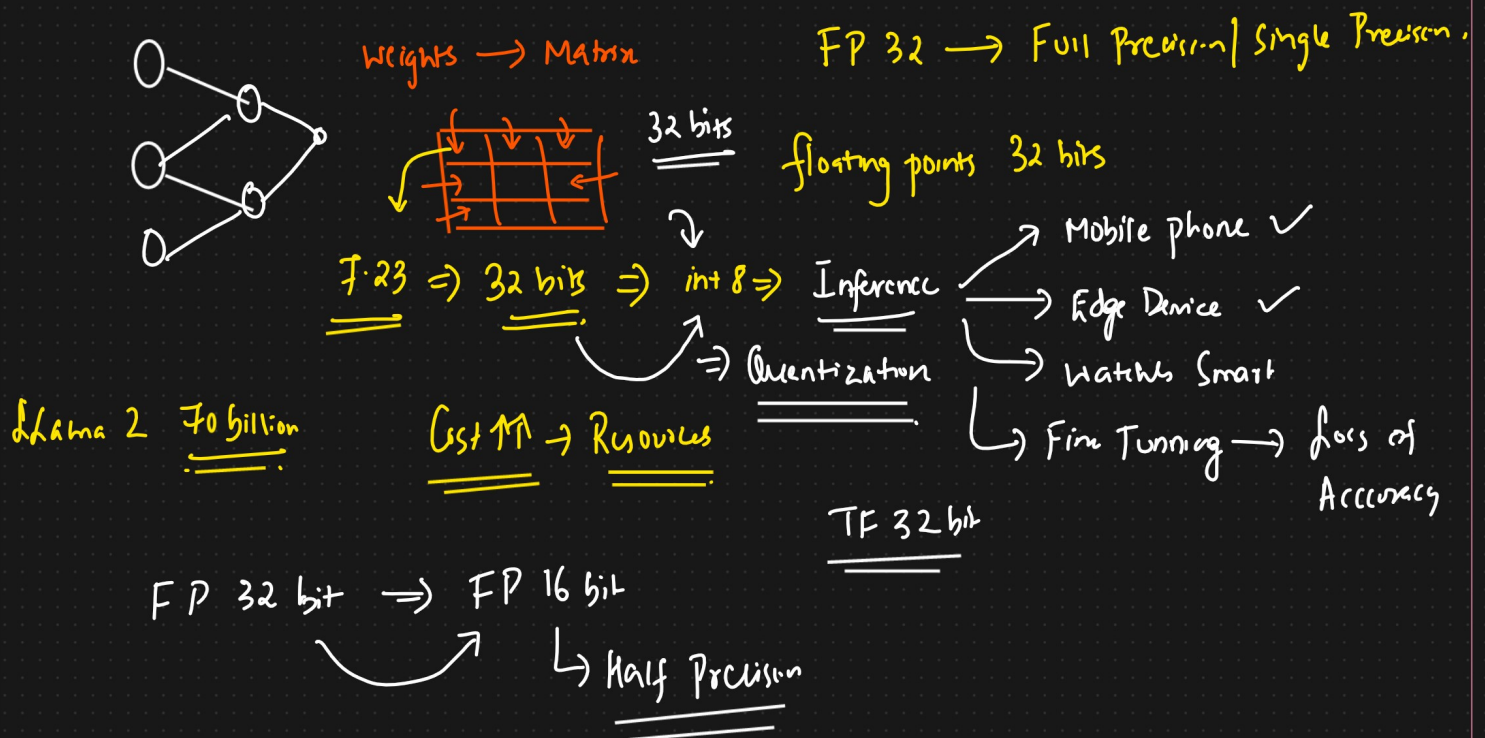 Weights → Matrix
FP 32 → Full Precision / Single Precision.
32 bits
floating points 32 bits
7.23 ⇒ 32 bits ⇒ int 8 ⇒ Inference
⇒ Quantization
Mobile phone ✓
Edge Device ✓
Watches Smart
Fine Tunning → Loss of
Acccuracy
LLama 2 70 billion
Cost ↑↑ → Resources
TF 32 bit
FP 32 bit ⇒ FP 16 bit
↳ Half Precision